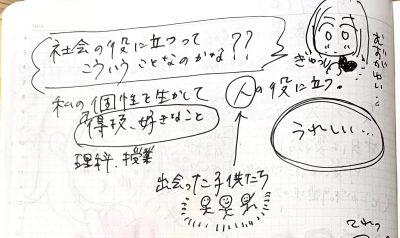 社会の役に立つって
こういうことなのかな??
私の個性を生かして
特技、好きなこと
人の役に立つ。
理科、授業
出会った子供たち
ぎゅっ
うれしい…